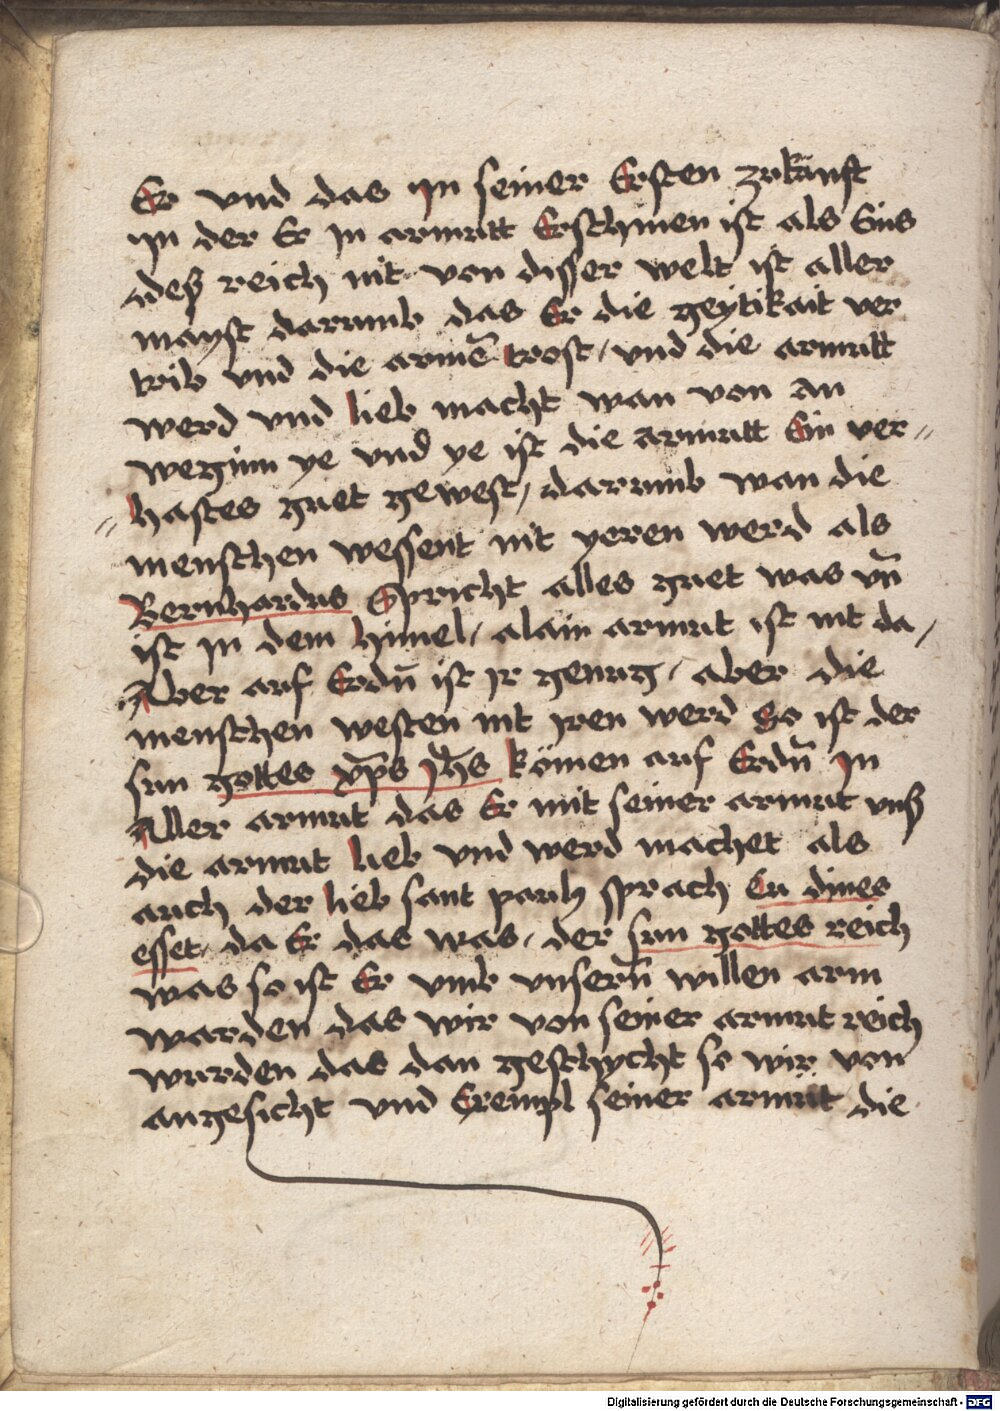 Er vnd das Jn seiner Ersten zrkünft
Jn der Er Jn armutt Erschinen ist als Eins
deß reich nit von disser welt ist aller
mayst darumb das Er die geytikait ver
trib vnd die armē trost / vnd die armutt
werd vnd lieb macht wan von an
weginn ye vnd ye ist die armutt Ein ver〃
〃hastes guet gewest / darumb wan die
menschen wessent nit yeren werd als
Bernhardus Spricht alles guet was vn̄
ist Jn dem himel / alain armut ist nit da /
Aber auf Erdn̄ ist Jr genug / aber die
menschen westen nit Jren werd So ist der
sun gottes xp̄s Jh̄s kömen auf Erdn̄ Jn
Aller armut das Er mit seiner armut vnß
die armut lieb vnd werd machet als
auch der lieb sant pauls sprach Cu dines
esset / da Er das was / der sun gottes reich
was so ist Er vmb vnsern̄ willen arm
warden das wir von seiner armut reich
wurden das dan geschycht so wir von
angesicht vnd Exeinpl seiner armüt die
Digitalisierung gefördert durch die Deutsche Forschungsgemeinschaft - DFG